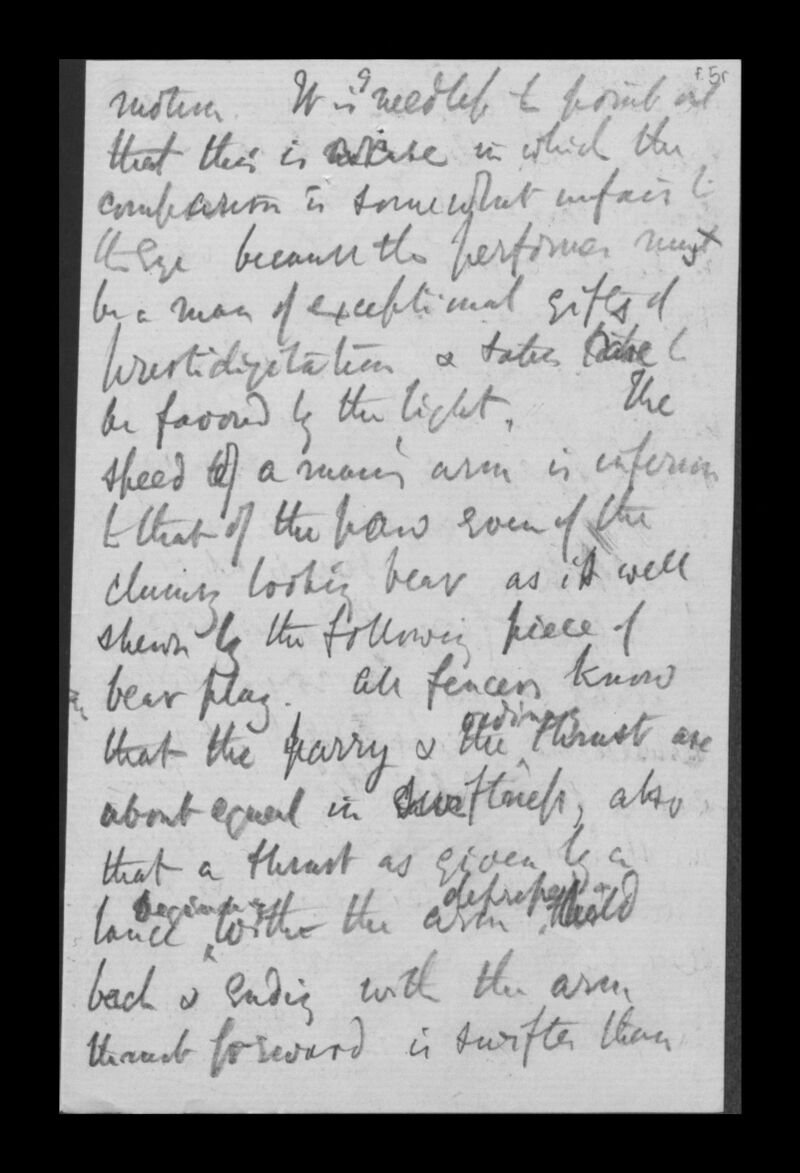 f. 5r
motion. It is needless to point out
that this is a case in which the
comparison is somewhat unfair to
the Eye because the performer must
be a man of exceptional gifts of
prestidigitation & takes care to
be favored by the light. The
speed of a man's arm is inferior
to that of the paw even of the
clumsy looking bear as is well
shewn by the following piece of
bear play. All fencers know
ordinary
that the parry & the thrust are
about equal in swiftness, also
that a thrust as given by a
beginning
lance with the arm held
back & ending with the arm
thrust forward is swifter than